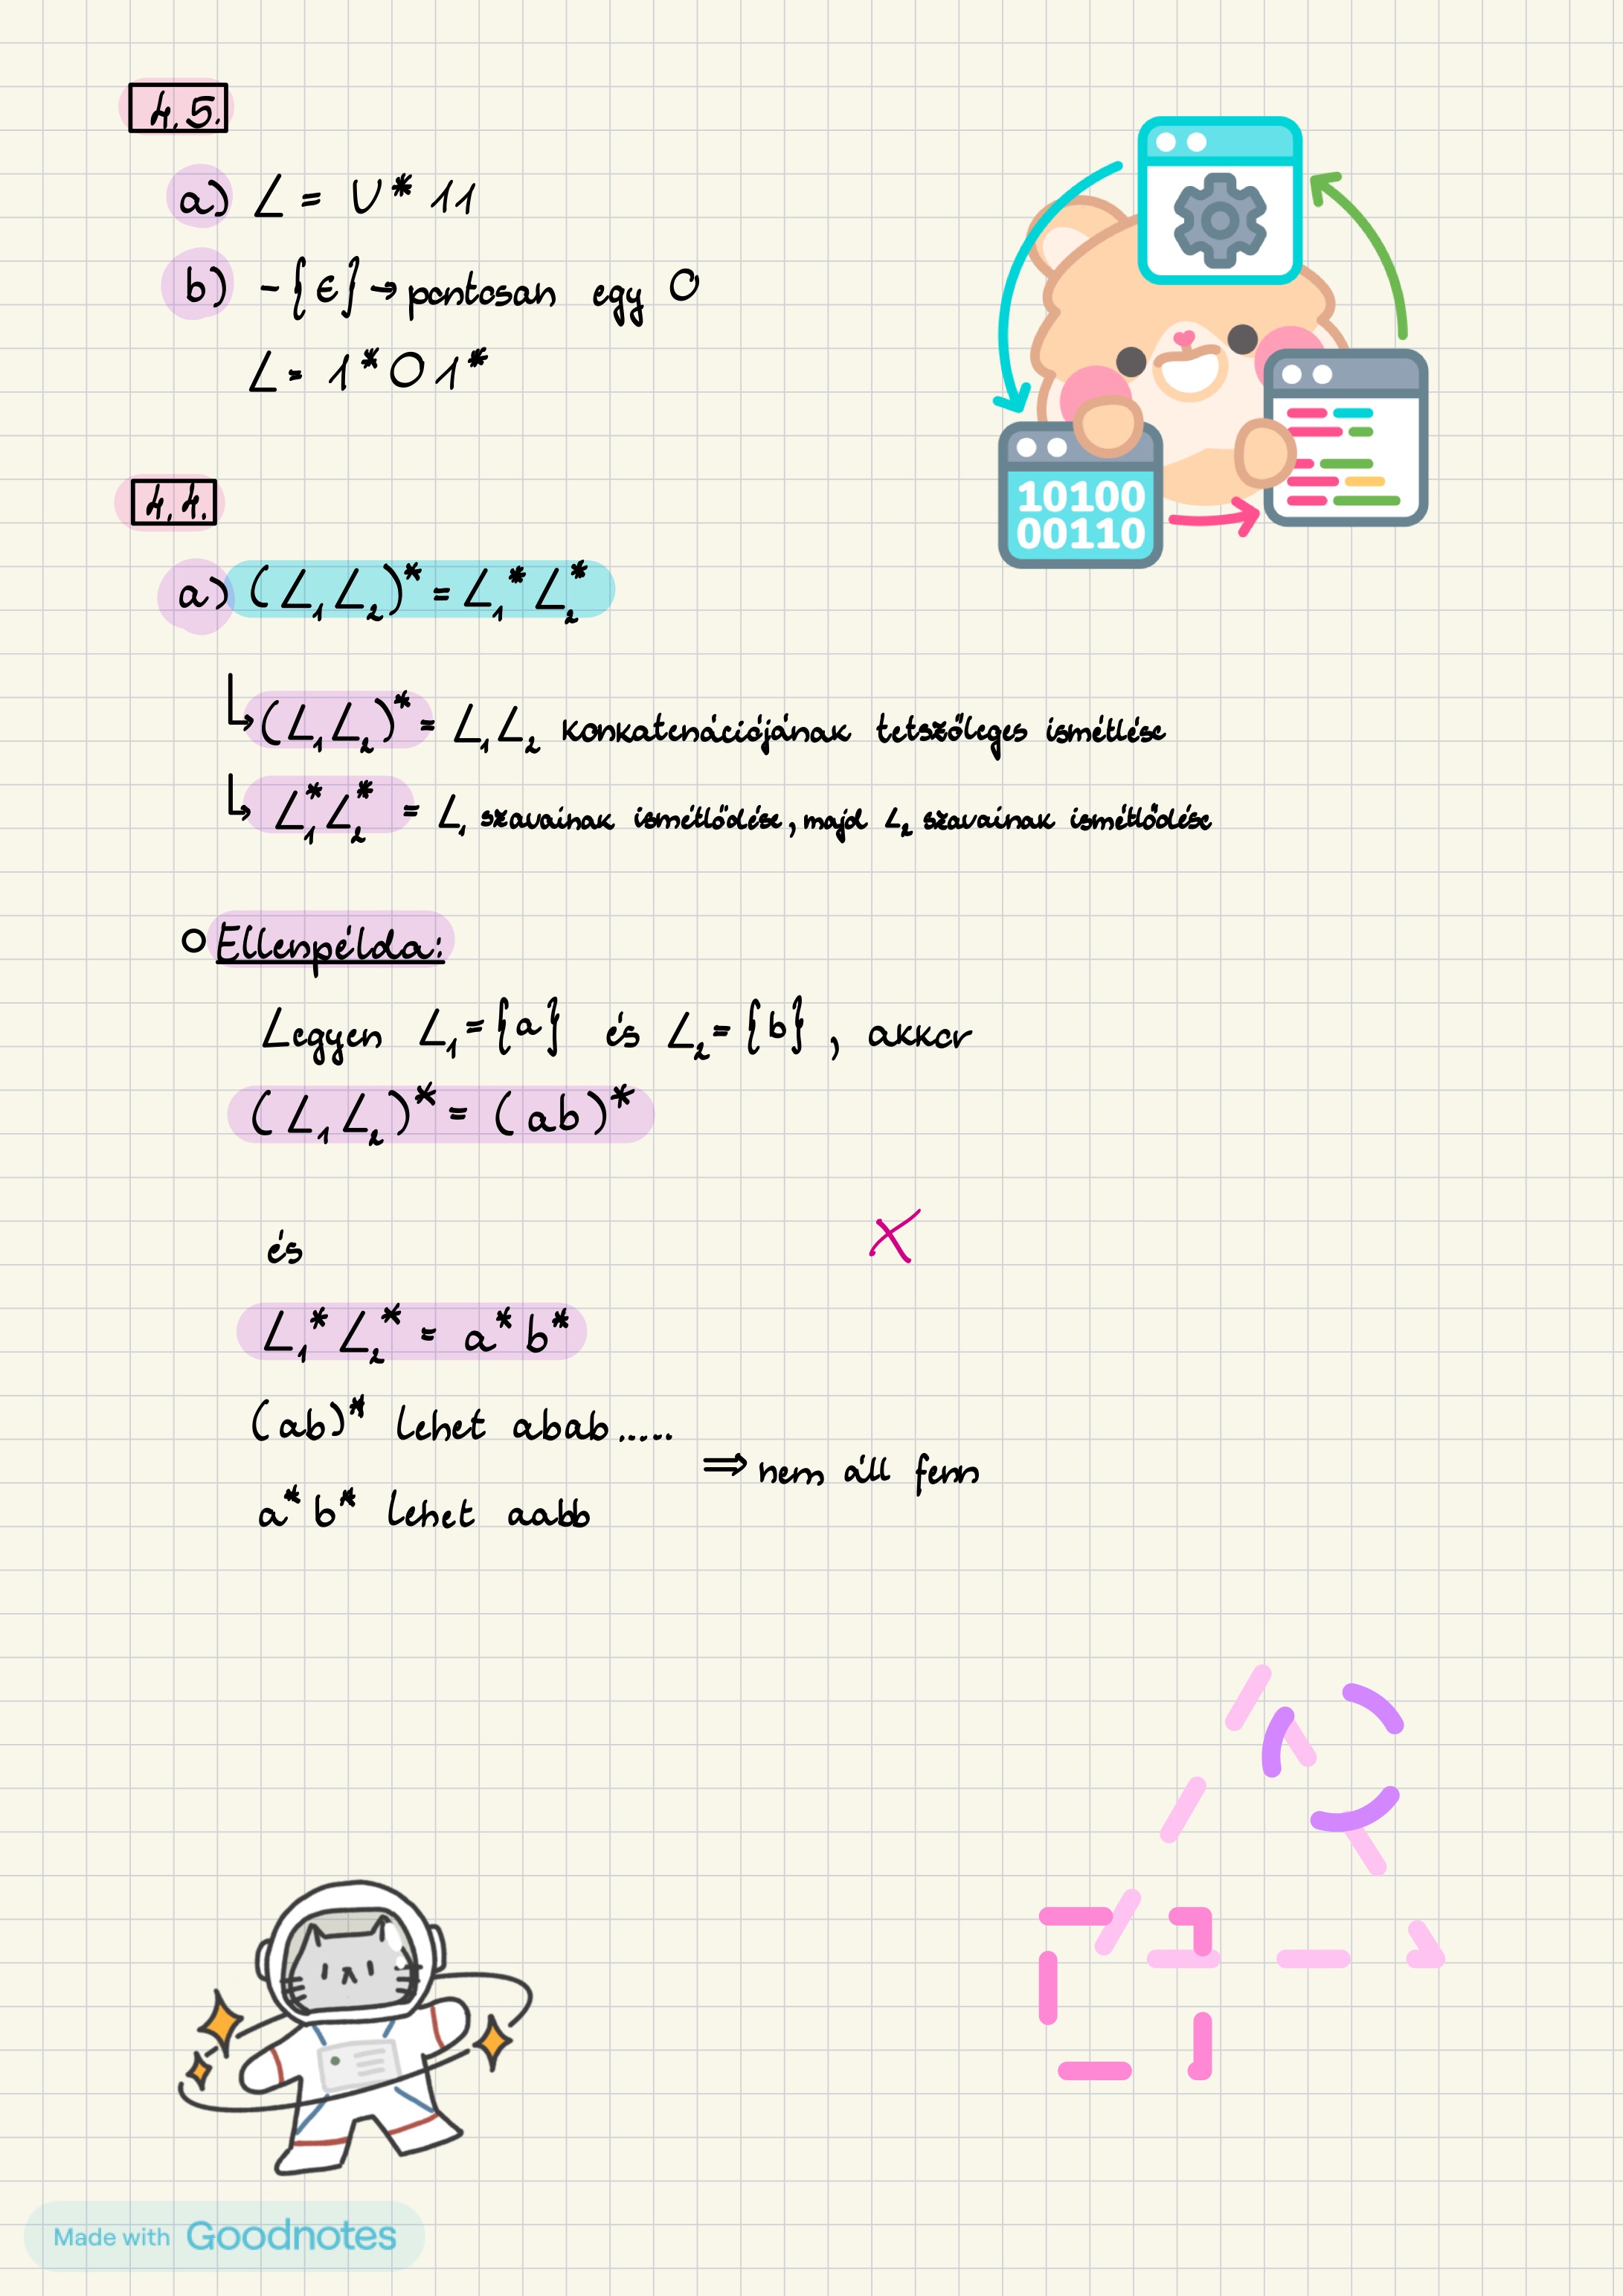 4.5.
a) L = U* 11
b) -{ε} → pontosan egy 0
L = 1* 0 1*
10100
00110
4.4.
a) (L₁L₂)* = L₁* L₂*
↳ (L₁L₂)* = L₁L₂ konkatenációjának tetszőleges ismétlése
↳ L₁* L₂* = L₁ szavainak ismétlődése, majd L₂ szavainak ismétlődése
○ Ellenpélda:
Legyen L₁={a} és L₂={b}, akkor
(L₁L₂)* = (ab)*
és
X
L₁* L₂* = a* b*
(ab)* lehet abab.....
⇒ nem áll fenn
a* b* lehet aabb
Made with Goodnotes